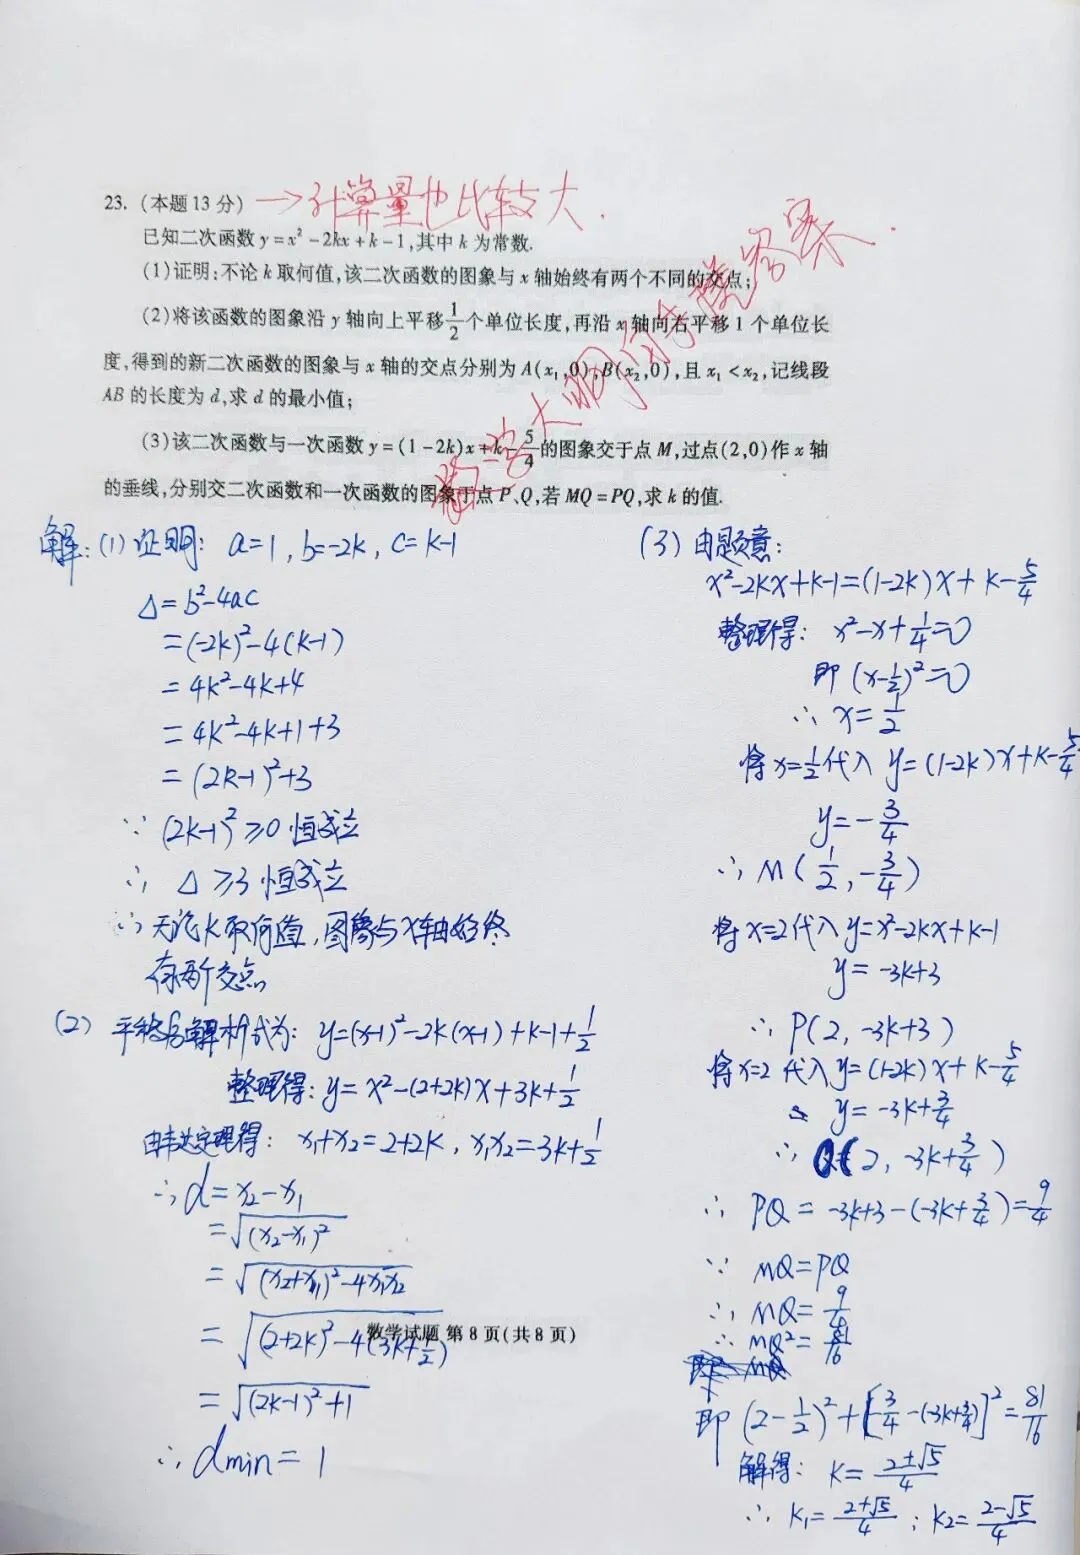 23. (本题13分) →计算量也比较大.
已知二次函数 y=x²-2kx+k-1,其中 k 为常数.
(1)证明:不论 k 取何值,该二次函数的图象与 x 轴始终有两个不同的交点;
(2)将该函数的图象沿 y 轴向上平移 1/2 个单位长度,再沿 x 轴向右平移 1 个单位长
度,得到的新二次函数的图象与 x 轴的交点分别为 A(x₁,0),B(x₂,0),且 x₁<x₂,记线段
AB 的长度为 d,求 d 的最小值;
(3)该二次函数与一次函数 y=(1-2k)x+k-5/4 的图象交于点 M,过点(2,0)作 x 轴
的垂线,分别交二次函数和一次函数的图象于点 P、Q,若 MQ=PQ,求 k 的值.
解:(1) 证明: a=1, b=-2k, c=k-1
Δ=b²-4ac
=(-2k)²-4(k-1)
=4k²-4k+4
=4k²-4k+1+3
=(2k-1)²+3
∵ (2k-1)²≥0 恒成立
∴ Δ≥3 恒成立
∴ 无论k取何值,图象与x轴始终
有两个交点
(2) 平移后解析式为: y=(x-1)²-2k(x-1)+k-1+1/2
整理得: y=x²-(2+2k)x+3k+1/2
由韦达定理得: x₁+x₂=2+2k, x₁x₂=3k+1/2
∴ d=x₂-x₁
=√(x₂-x₁)²
=√(x₂+x₁)²-4x₁x₂
=√(2+2k)²-4(3k+1/2)
=√(2k-1)²+1
∴ dmin=1
(3) 由题意:
x²-2kx+k-1=(1-2k)x+k-5/4
整理得: x²-x+1/4=0
即 (x-1/2)²=0
∴ x=1/2
将 x=1/2 代入 y=(1-2k)x+k-5/4
y=-3/4
∴ M(1/2, -3/4)
将 x=2 代入 y=x²-2kx+k-1
y=-3k+3
∴ P(2, -3k+3)
将 x=2 代入 y=(1-2k)x+k-5/4
y=-3k+3/4
∴ Q(2, -3k+3/4)
∴ PQ=-3k+3-(-3k+3/4)=9/4
∵ MQ=PQ
∴ MQ=9/4
∴ MQ²=81/16
即 (2-1/2)²+[-3/4-(-3k+3/4)]²=81/16
解得: k=2±√5/4
∴ k₁=2+√5/4; k₂=2-√5/4
数学试题 第8页(共8页)